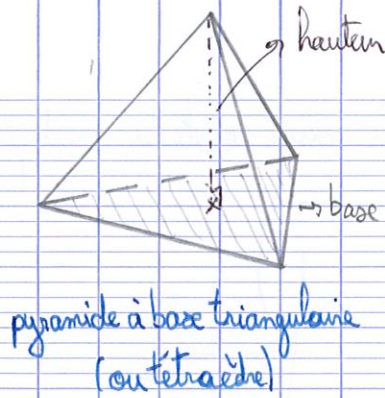 hauteur
base
pyramide à base triangulaire
(ou tétraèdre)